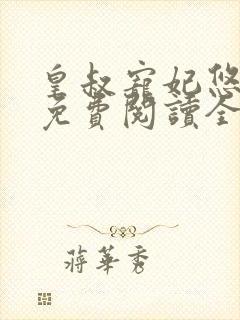 皇叔寵妃悠
免費閱讀全
蔣華秀